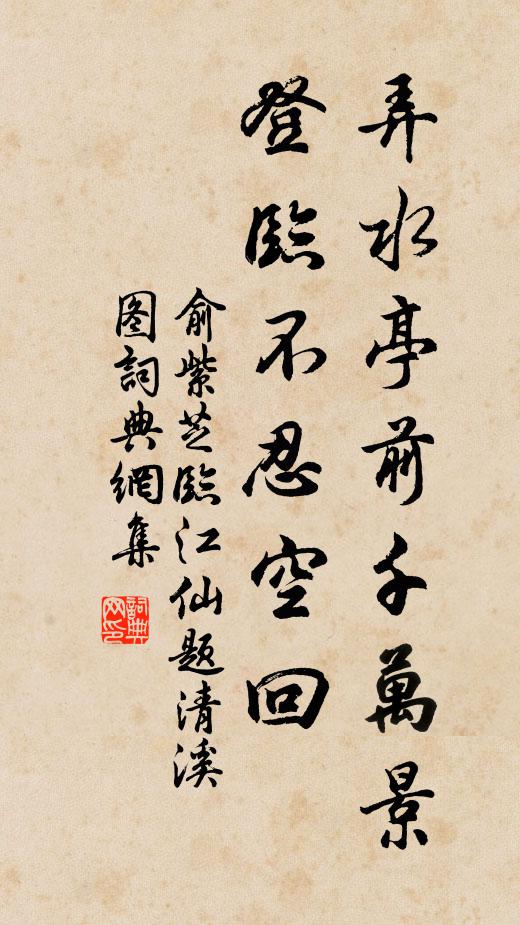 弄水亭前千萬景
登臨不忍空回
俞紫芝臨江仙題清溪
图詞典網集
詞典网印